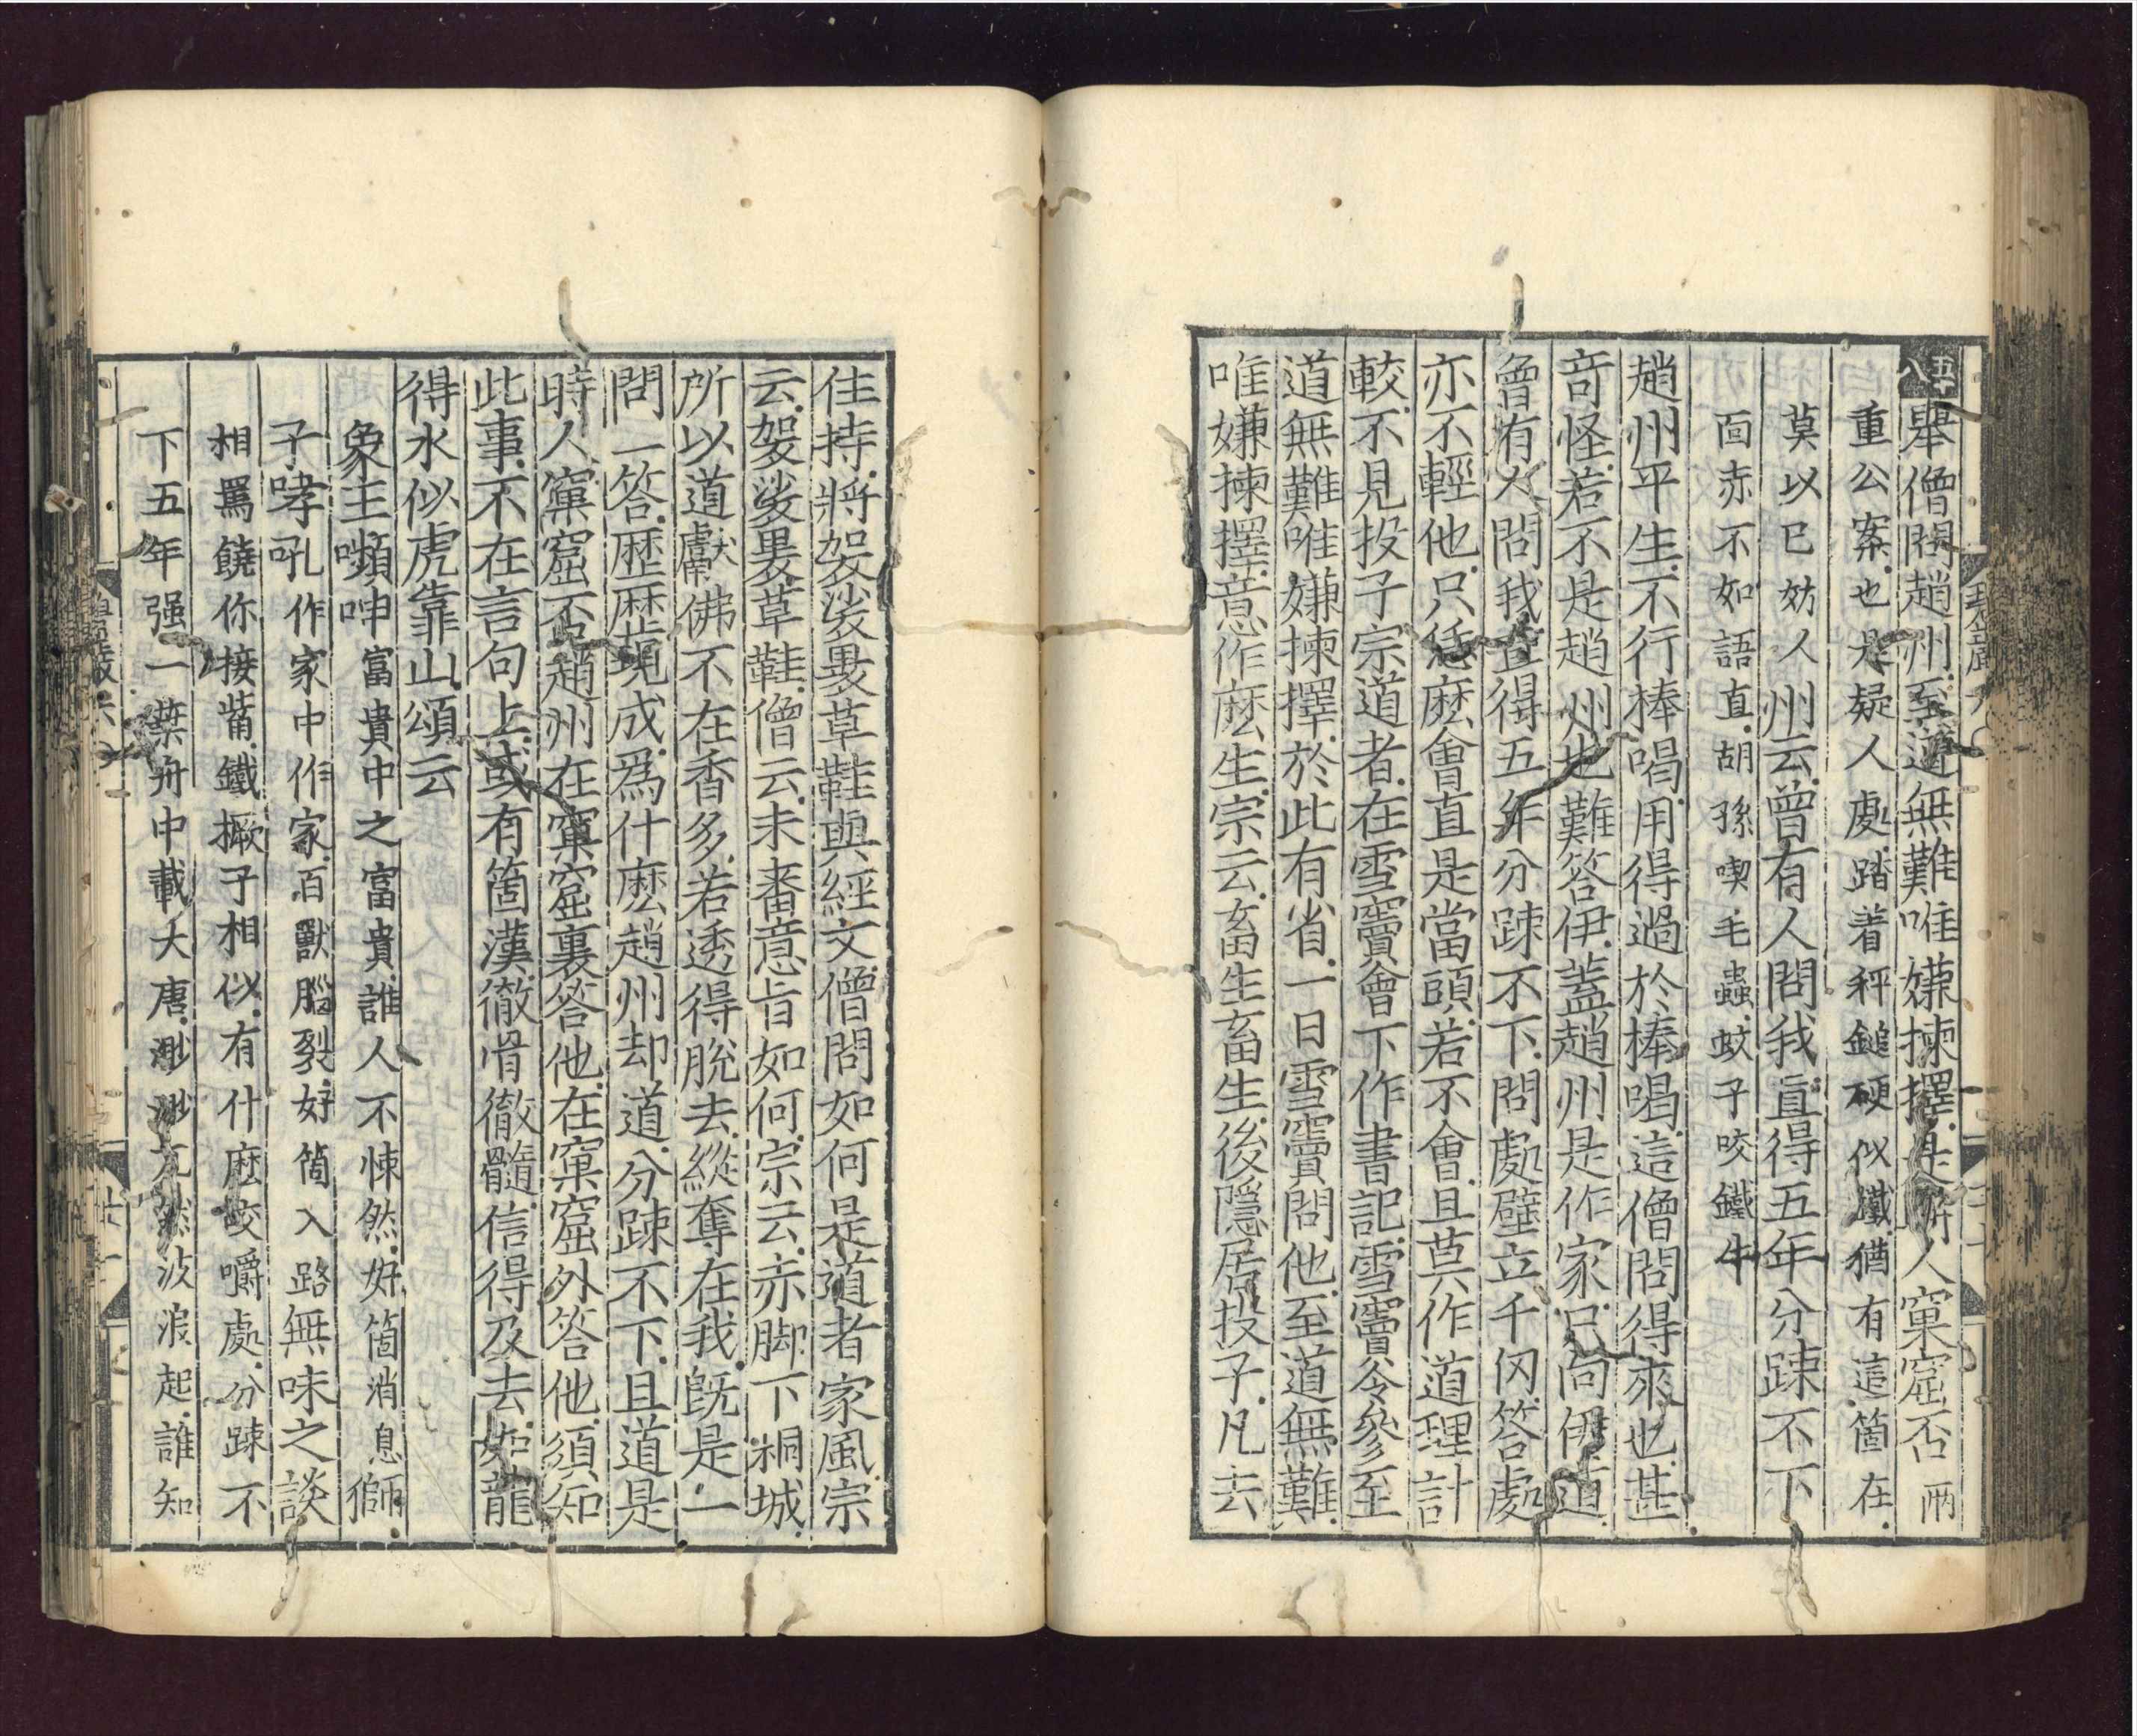 五十八 舉僧問趙州至道無難唯嫌揀擇是時人窠窟否兩
重公案也是疑人處踏着秤鎚硬似鐵猶有這箇在
莫以已妨人州云曾有人問我直得五年分踈不下
面赤不如語直胡孫喫毛蟲蚊子咬鐵牛
趙州平生不行棒喝用得過於棒喝這僧問得來也甚
奇怪若不是趙州也難答伊蓋趙州是作家只向伊道
曾有人問我直得五年分踈不下問處壁立千仞答處
亦不輕他只恁麽會直是當頭若不會且莫作道理計
較不見投子宗道者在雪竇會下作書記雪竇令參至
道無難唯嫌揀擇於此有省一日雪竇問他至道無難
唯嫌揀擇意作麽生宗云畜生畜生後隱居投子凡去
住持將袈裟裹草鞋與經文僧問如何是道者家風宗
云袈裟裹草鞋僧云未審意旨如何宗云赤脚下桐城
所以道獻佛不在香多若透得脫去縱奪在我旣是一
問一答歷歷現成爲什麽趙州却道分踈不下且道是
時人窠窟否趙州在窠窟裏答他在窠窟外答他須知
此事不在言句上或有箇漢徹骨徹髓信得及去如龍
得水似虎靠山頌云
象王嚬呻富貴中之富貴誰人不悚然好箇消息獅
子哮吼作家中作家百獸腦裂好箇入路無味之談
相罵饒你接觜鐵橛子相似有什麽咬嚼處分踈不
下五年强一葉舟中載大唐渺渺兀然波浪起誰知